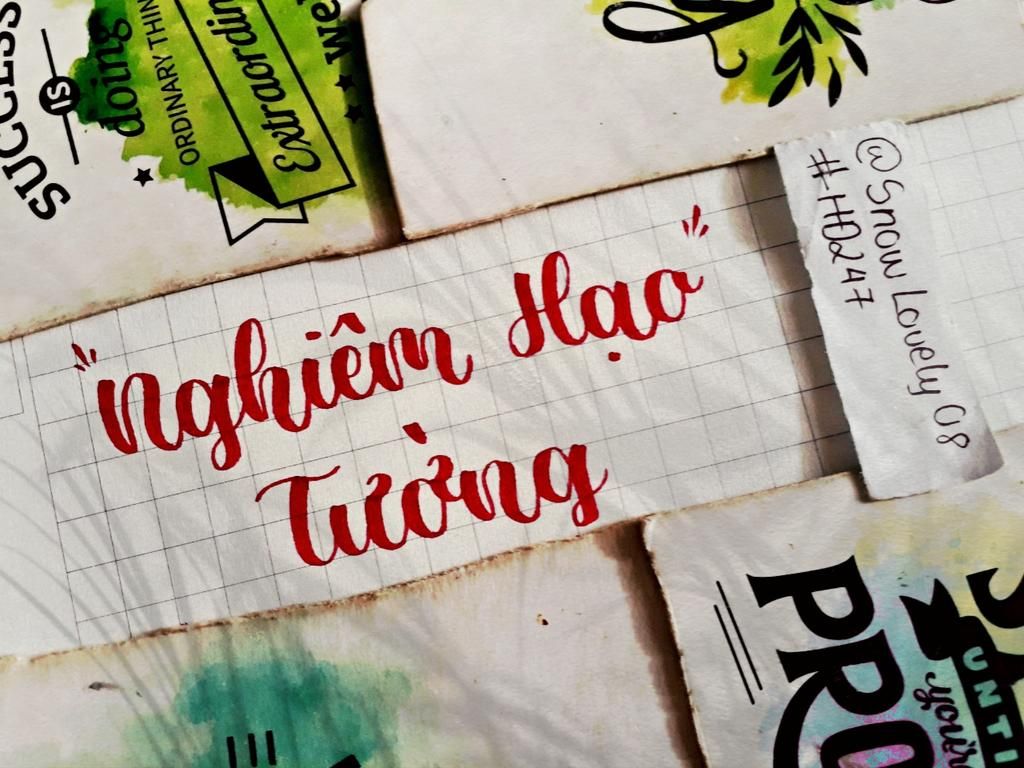 SUCCESS
IS
doing
ORDINARY THIN
Extraordin
"Nghiêm Hạo"
Tường
@Snow Lovely 08
#HD247
PRO
UNTI
you're